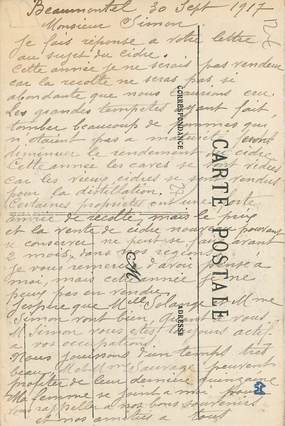 Beaumontel, 30 Sept 1917
Monsieur Simon
Je fais réponse a votre lettre
au sujet du cidre.
Cette année je ne serais pas vendeur
car la recolte ne seras pas si
abondante que nous l'aurions cru.
Les grandes tempetes ayant fait
tomber beaucoup de pommes qui
n'etaient pas a maturité feront
diminuer le rendement de cidre
Cette année les caves se sont vidées
Car les vieux cidres se sont vendus
pour la distillation.
Certaines propriétés ont une
année de recolte, mais le prix
et la vente de cidre nouveau pouvant
se conserver ne peut se faire avant
2 mois, dans nos regions.
Je vous remercie d'avoir pensé a
moi, mais cette année je ne
peux pas en vendre.
J'espère que Mlle Solange et Mme
Simon vont bien. Quant a vous
Mr Simon vous etes toujours actif
a vos occupations.
Nous jouissons d'un temps très
beau, Mr et Mme Sauvage peuvent
profiter de leur dernière quinzaine
Ma femme se joint a moi pour
vous rappeler a nos bons souvenirs
et nos amitiés a tous
CARTE POSTALE
CORRESPONDANCE
ADRESSE